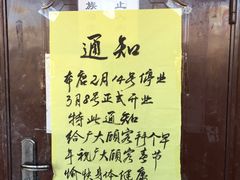 禁止
通知
本店2月14号停业
3月8号正式开业
特此通知
给广大顾客拜个早
年祝广大顾客春节
愉快身体健康